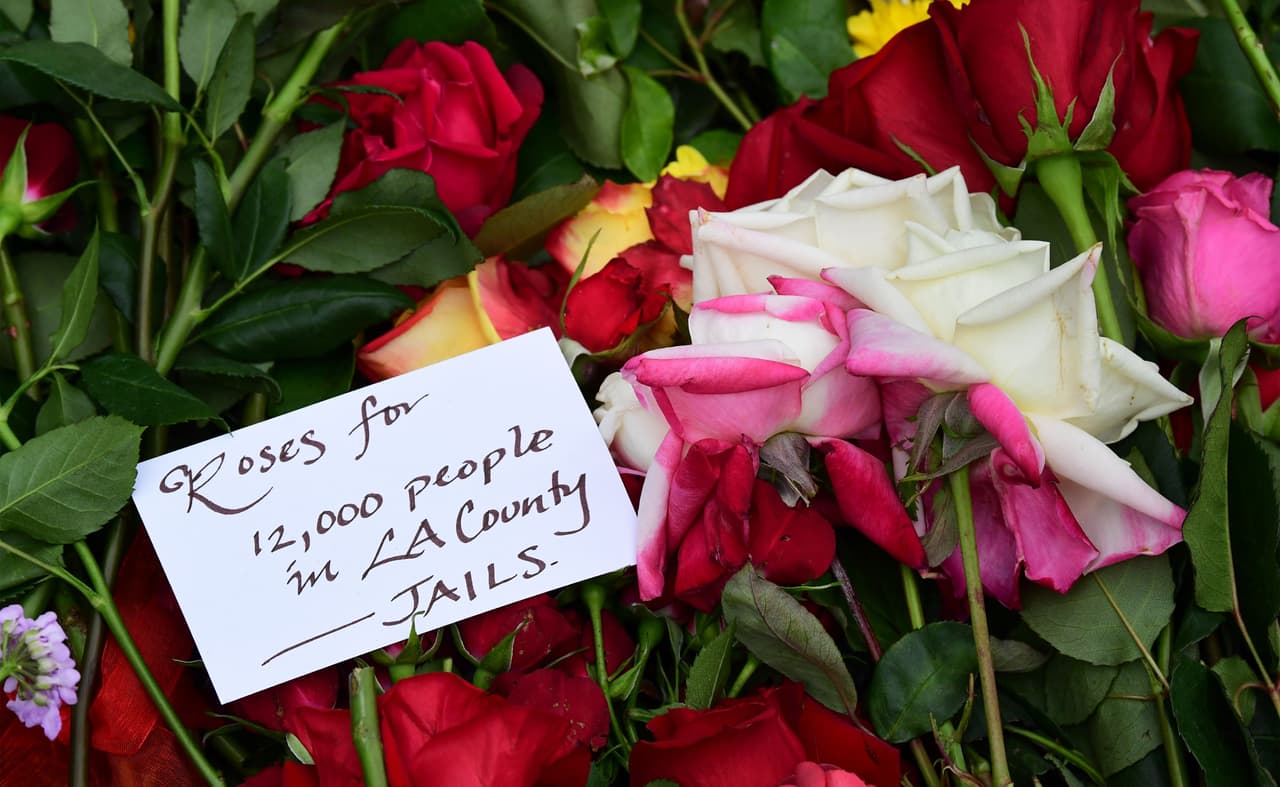 Roses for
12,000 people
in LA County
JAILS.